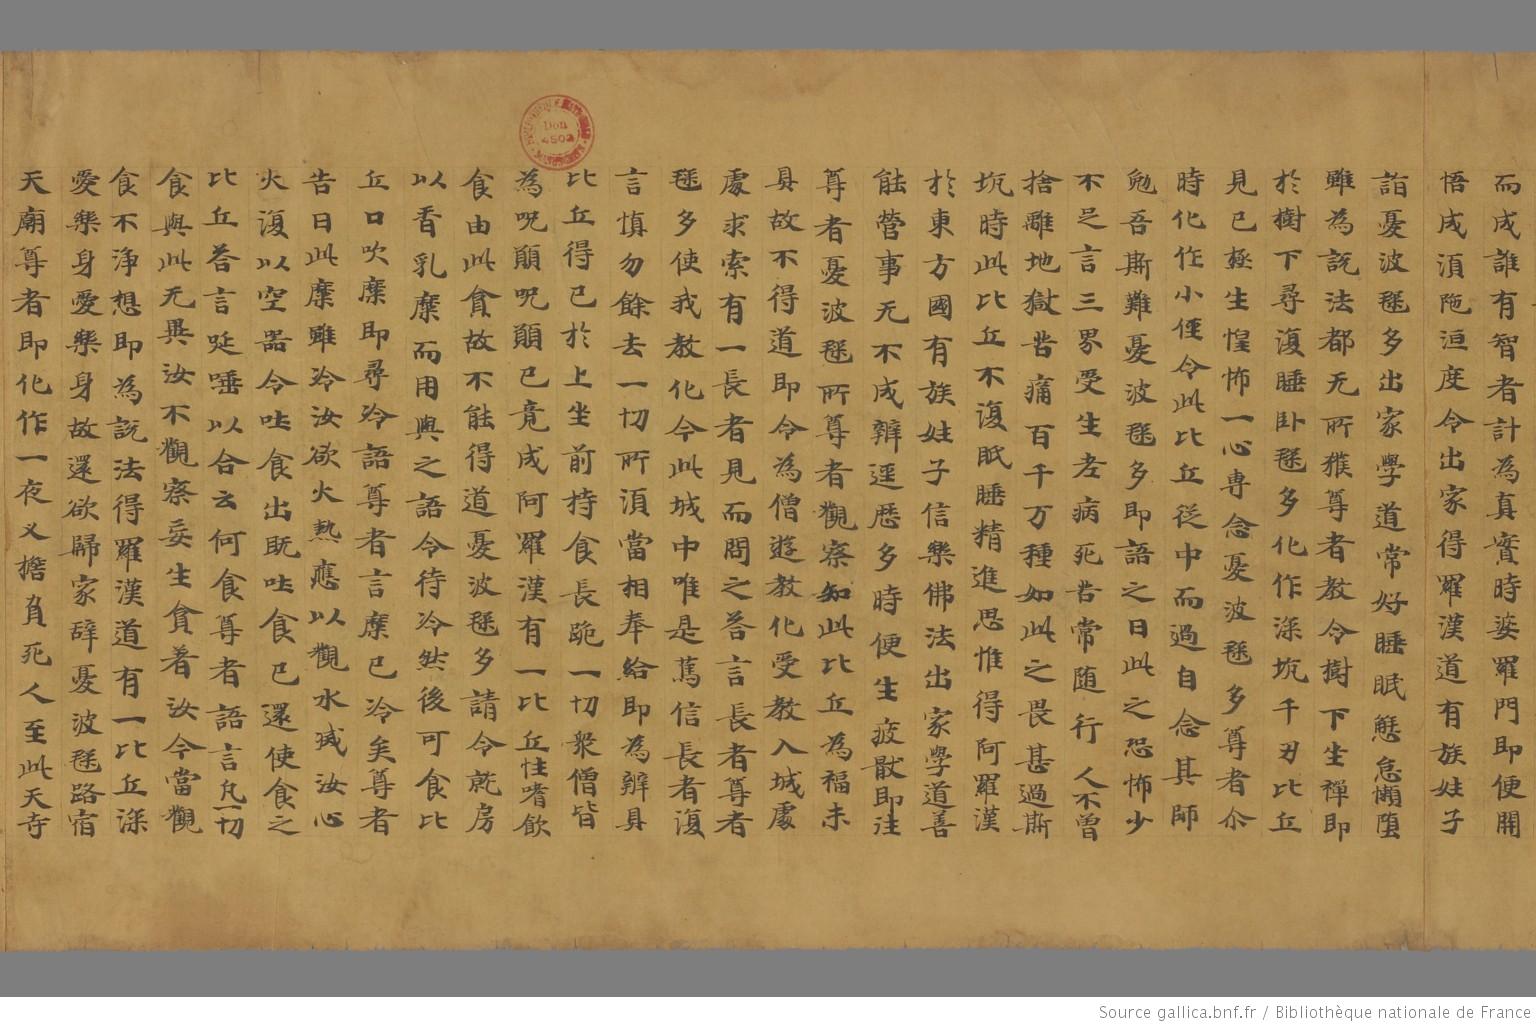 而成誰有智者計為真實時婆羅門即便開
悟成須陁洹度令出家得羅漢道有族姓子
詣憂波毱多出家學道常好睡眠懈怠懶墮
雖為説法都无所獲尊者教令樹下坐禪即
於樹下尋復睡卧毱多化作深坑千刃比丘
見已極生惶怖一心専念憂波毱多尊者尒
時化作小俓令此比丘従中而過自念其師
勉吾斯難憂波毱多即語之曰此之恐怖少
不足言三界受生老病死苦常随行人不曽
捨離地獄苦痛百千万種如此之畏甚過斯
坑時此比丘不復眠睡精進思惟得阿羅漢
於東方國有族姓子信樂佛法出家學道善
能營事无不成辦逕歷多時便生疲猒即往
尊者憂波毱所尊者觀察知此比丘為福未
具故不得道即令為僧遊教化受教入城處
處求索有一長者見而問之荅言長者尊者
毱多使我教化今此城中唯是蔫信長者復
言慎勿餘去一切所須當相奉給即為辦具
比丘得已於上坐前持食長跪一切衆僧皆
為呪願呪願已竟成阿羅漢有一比丘性嗜飲
食由此貪故不能得道憂波毱多請令就房
以香乳糜而用與之語令待冷然後可食比
丘口吹糜即尋冷語尊者言糜已冷矣尊者
告曰此糜雖冷汝欲火熱應以觀水滅汝心
火復以空器令吐食出既吐食已還使食之
比丘荅言唌唾以合云何食尊者語言凡一切
食與此无異汝不觀察妄生貪著汝今當觀
食不淨想即為説法得羅漢道有一比丘深
愛樂身愛樂身故還欲歸家辞憂波毱路宿
天廟尊者即化作一夜叉擔負死人至此天寺
Don
4502
Source gallica.bnf.fr / Bibliothèque nationale de France